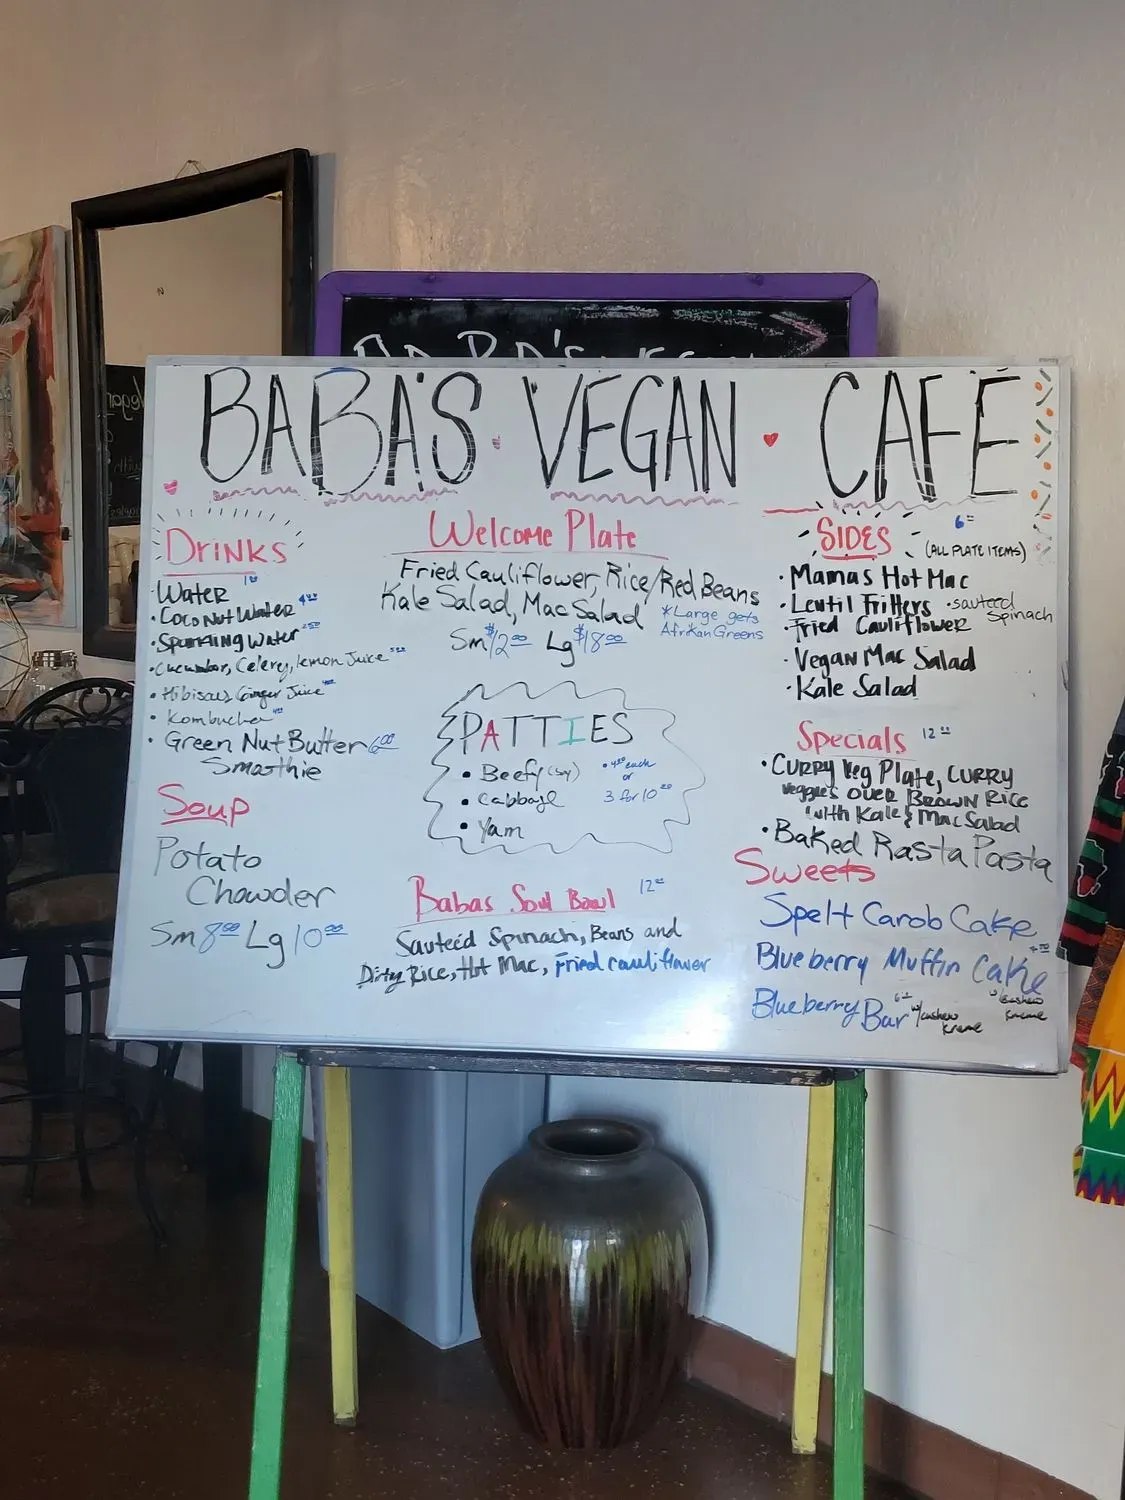 BABA'S VEGAN CAFÉ
DRINKS
Water 1.00
Coconut Water 4.00
Sparkling Water 2.50
Cucumber, Celery, lemon Juice
Hibiscus Ginger Juice
Kombucha
Green Nut Butter 6.00
Smoothie
Soup
Potato
Chowder
Sm 8.00 Lg 10.00
Welcome Plate
Fried Cauliflower, Rice/Red Beans
Kale Salad, Mac Salad
*Large gets
Afrikan Greens
Sm $12.00 Lg $18.00
PATTIES
Beefy (soy)
Cabbage
Yam
each
or
3 for 10.00
Babas Soul Bowl 12.00
Sauteéd Spinach, Beans and
Dirty Rice, Hot Mac, Fried cauliflower
SIDES 6
(ALL PLATE ITEMS)
Mamas Hot Mac
Lentil Fritters
sauteed
Spinach
Fried Cauliflower
Vegan Mac Salad
Kale Salad
Specials 12.00
Curry Veg Plate, Curry
Veggies over Brown Rice
with Kale & Mac Salad
Baked Rasta Pasta
Sweets
Spelt Carob Cake
Blueberry Muffin Cake
w/cashew
kreme
Blueberry Bar
w/cashew
kreme